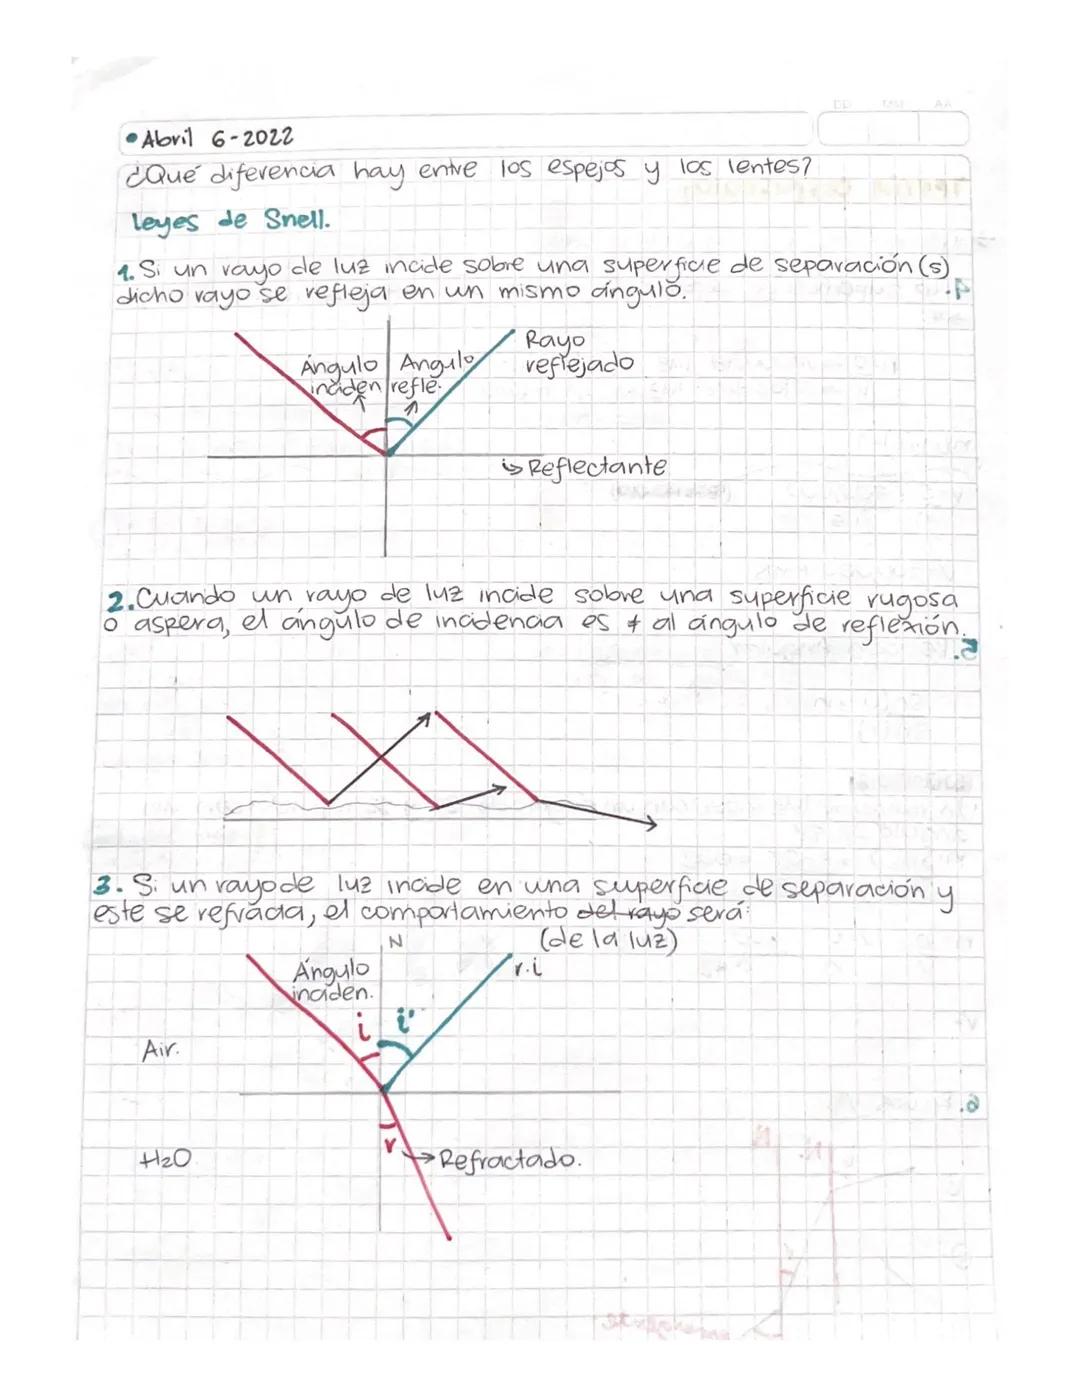 DD MM AA
• Abril 6-2022
¿Qué diferencia hay entre los espejos y los lentes?
Leyes de Snell.
1. Si un rayo de luz incide sobre una superficie de separación (s)
dicho rayo se refleja en un mismo ángulo.
Ángulo inciden
Angulo refle.
Rayo
reflejado
↳ Reflectante
2. Cuando un rayo de luz incide sobre una superficie rugosa
o aspera, el ángulo de incidencia es ≠ al ángulo de reflexión.
3. Si un rayo de luz incide en una superficie de separación y
este se refracta, el comportamiento del rayo será:
(de la luz)
N
Ángulo
inciden.
r.i
i i'
Air.
H2O
r → Refractado.